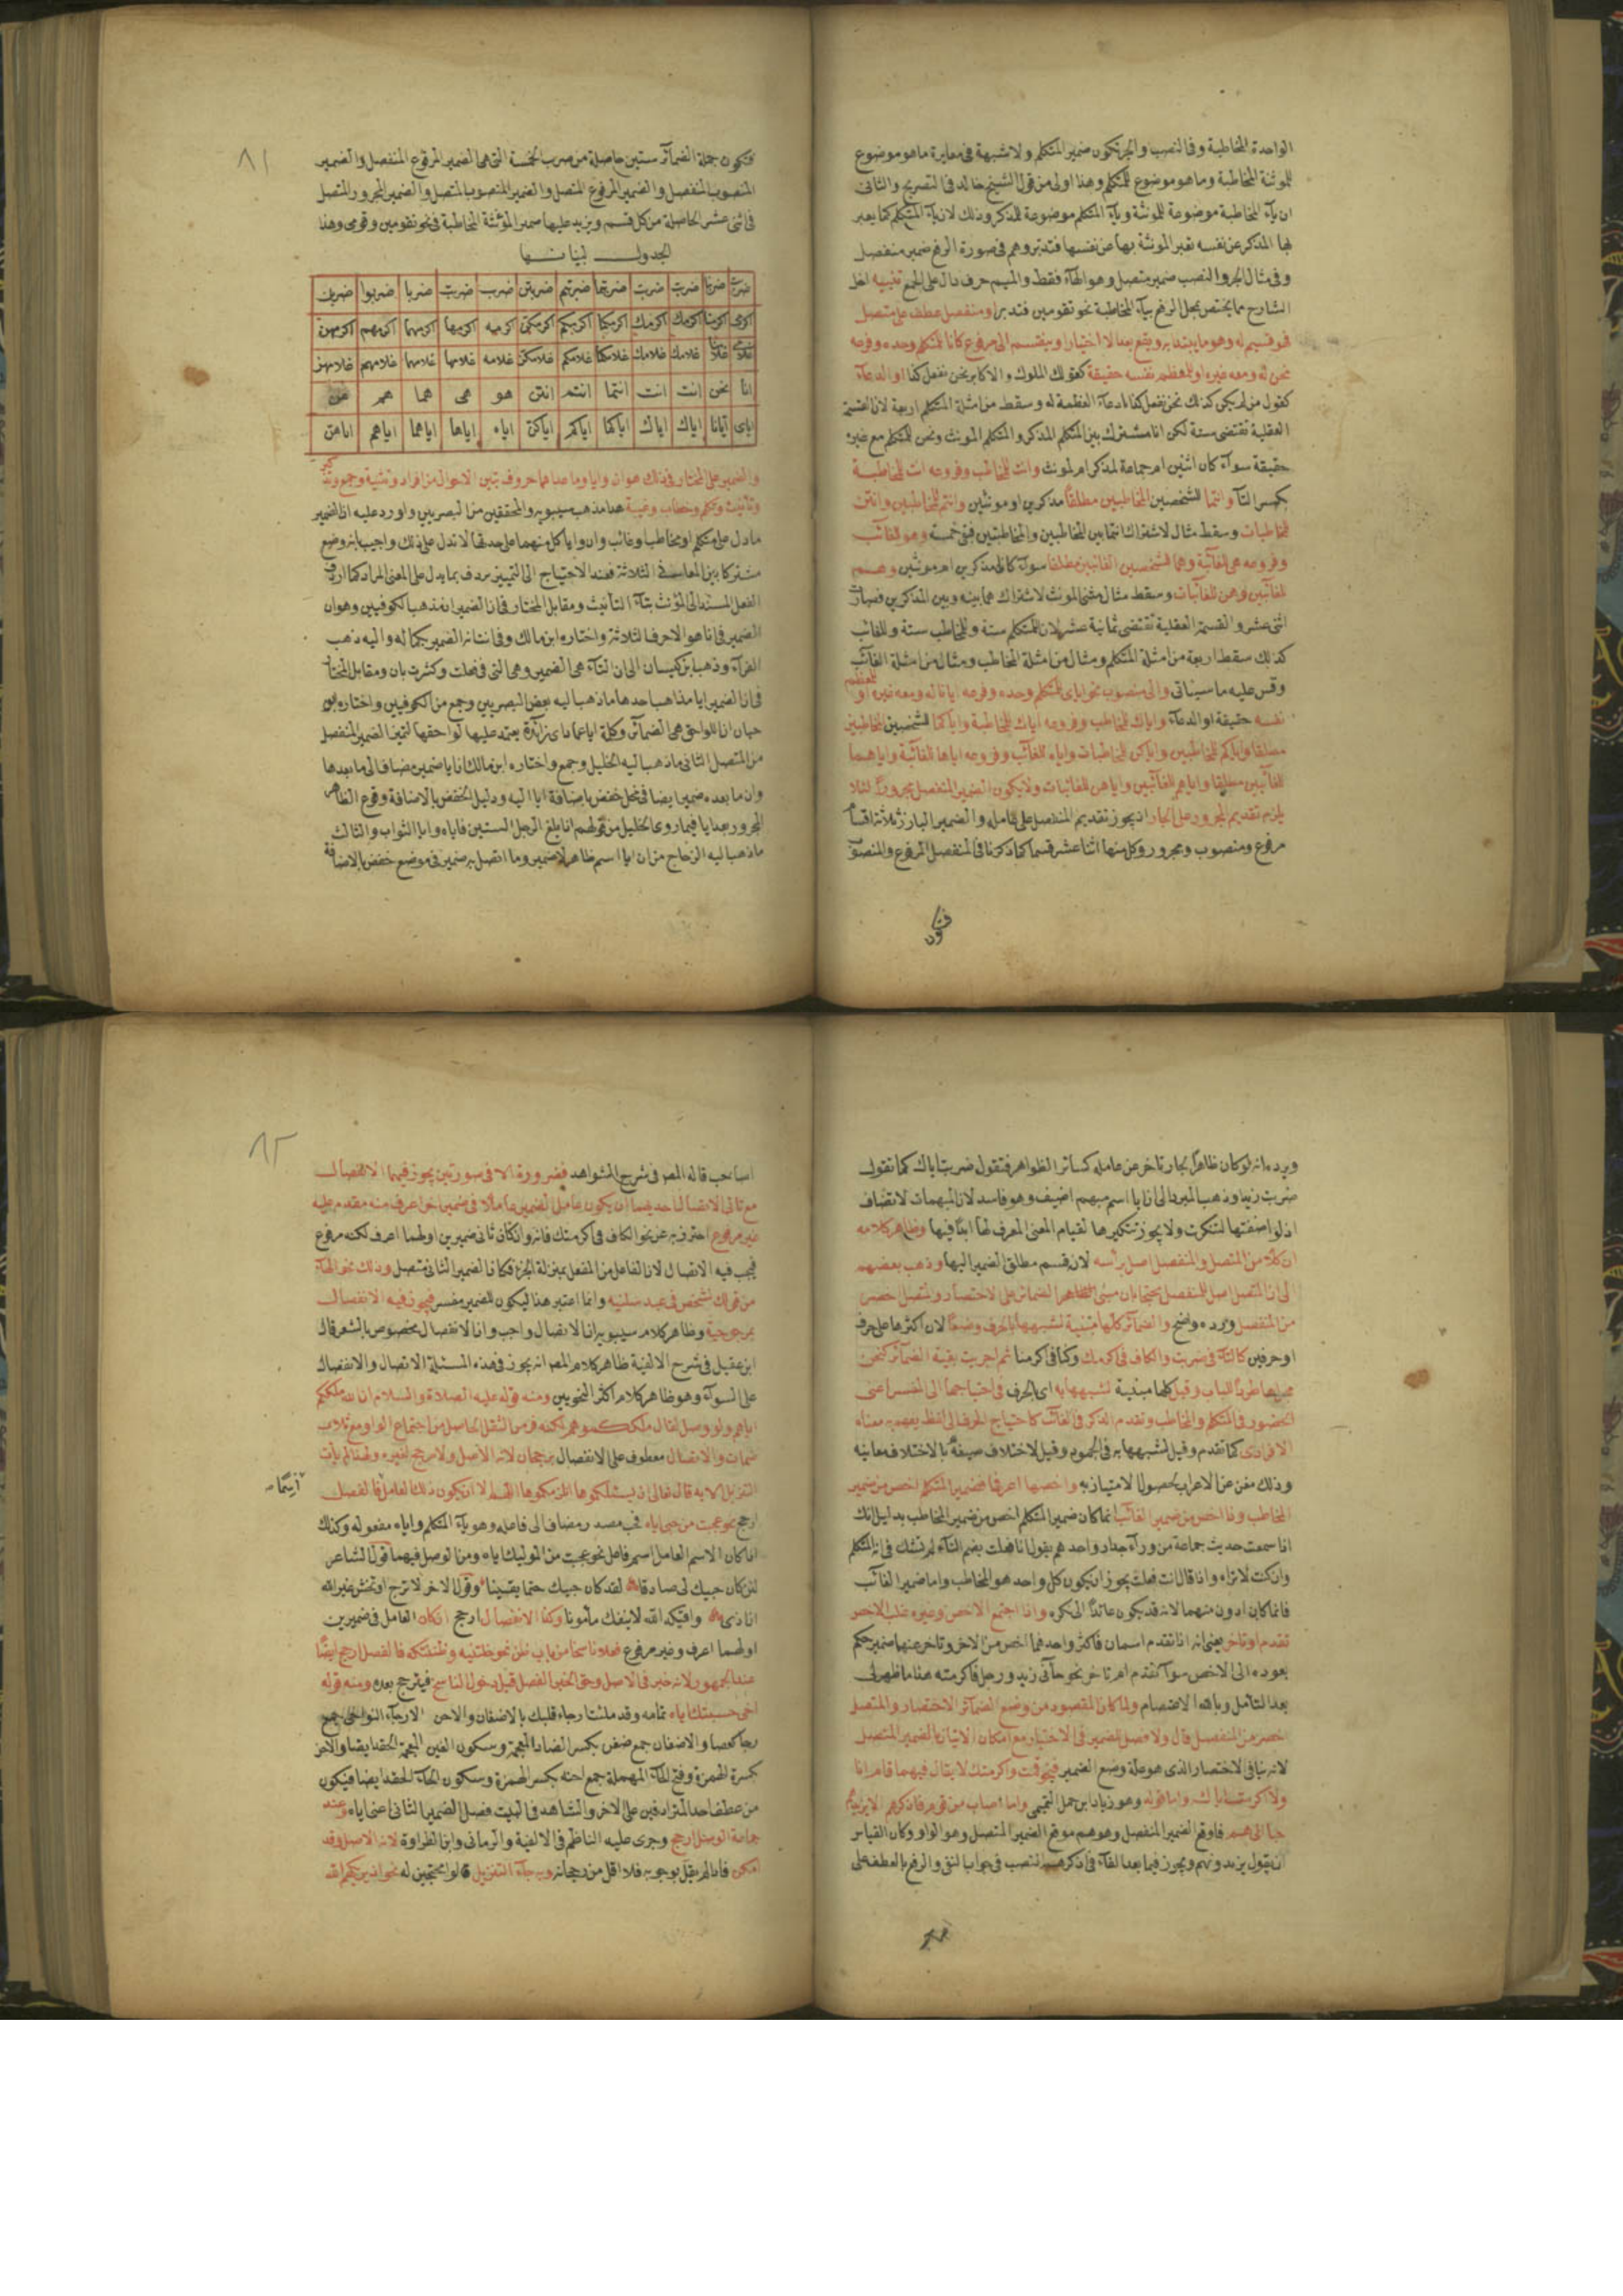 الواحدة المخاطبة وفى النصب والجر تكون ضمير المتكلم ولا شبهة فى مغايرة ما هو موضوع
للمونثة المخاطبة وما هو موضوع للمتكلم وهذا اولى من قول الشيخ خالد فى التصريح والثانى
ان ياء المخاطبة موضوعة للمونثة وياء المتكلم موضوعة للمذكر وذلك لان ياء المتكلم كما يعبر
بها المذكر عن نفسه تعبر المونثة بها عن نفسها فتدبر وهم فى صورة الرفع ضمير منفصل
وفى مثال الجر والنصب ضمير متصل وهو الهاء فقط والميم حرف دال على الجمع تنبيه اخل
الشارح مما يختص بمحل الرفع بياء المخاطبة نحو تقومين فتدبر او منفصل عطف على متصل
فهو قسيم له وهو ما يبتدا به ويقع بعد الا اختيارا وينقسم الى مرفوع كانا للمتكلم وحده وفرعه
نحن له ومعه غيره او للمعظم نفسه حقيقة كقولك الملوك والاكابر نحن نفعل كذا او ادعاء
كقول من لم يكن كذلك نحن نفعل كذا لادعاء العظمة له وسقط من امثلة المتكلم اربعة لان القسمة
العقلية تقتضى ستة لكن انا مشترك بين المتكلم المذكر والمتكلم المونث ونحن للمتكلم مع غيره
حقيقة سواء كان اثنين ام جماعة لمذكر ام لمونث وانت للمخاطب وفروعه انت للمخاطبة
بكسر التاء وانتما للشخصين المخاطبين مطلقا مذكرين او مونثين وانتم للمخاطبين وانتن
للمخاطبات وسقط مثال لاشتراك انتما بين المخاطبين والمخاطبتين فبقى خمسة وهو للغائب
وفروعه هى للغائبة وهما للشخصين الغائبين مطلقا سواء كانا مذكرين ام مونثين وهم
للغائبين وهن للغائبات وسقط مثال مثنى المونث لاشتراك هما بينه وبين المذكرين فصارت
اثنى عشر والقسمة العقلية تقتضى ثمانية عشر لان للمتكلم ستة وللمخاطب ستة وللغائب
كذلك سقط اربعة من امثلة المتكلم ومثال من امثلة المخاطب ومثال من امثلة الغائب
وقس عليه ما سياتى والى منصوب نحو اياى للمتكلم وحده وفرعه ايانا له ومعه غيره او للمعظم
نفسه حقيقة او ادعاء واياك للمخاطب وفروعه اياك للمخاطبة واياكما للشخصين المخاطبين
مطلقا واياكم للمخاطبين واياكن للمخاطبات واياه للغائب وفروعه اياها للغائبة واياهما
للغائبين مطلقا واياهم للغائبين واياهن للغائبات ولا يكون الضمير المنفصل مجرورا لئلا
يلزم تقديم المجرور على الجار اذ يجوز تقديم المنفصل على عامله والضمير البارز ثلاثة اقسام
مرفوع ومنصوب ومجرور وكل منها اثنا عشر قسما كما ذكرنا فى المنفصل المرفوع والمنصوب
فتكون
٨١
فتكون جملة الضمائر ستين حاصلة من ضرب الخمسة التى هى الضمير المرفوع المنفصل والضمير
المنصوب المنفصل والضمير المرفوع المتصل والضمير المنصوب المتصل والضمير المجرور المتصل
فى اثنى عشر الحاصلة من كل قسم ويزيد عليها ضمير المؤنثة المخاطبة فى نحو تقومين وقومى وهذا
الجدول لبيانها
ضربت ضربنا ضربت ضربت ضربتما ضربتم ضربتن ضرب ضربت ضربا ضربوا ضربن
اكرمنى اكرمنا اكرمك اكرمك اكرمكما اكرمكم اكرمكن اكرمه اكرمها اكرمهما اكرمهم اكرمهن
غلامى غلامنا غلامك غلامك غلامكما غلامكم غلامكن غلامه غلامها غلامهما غلامهم غلامهن
انا نحن انت انت انتما انتم انتن هو هى هما هم هن
اياى ايانا اياك اياك اياكما اياكم اياكن اياه اياها اياهما اياهم اياهن
والضمير على المختار فى ذلك هو ان وايا وما عداهما حروف تبين الاحوال من افراد وتثنية وجمع وتذكير
وتأنيث وتكلم وخطاب وغيبة هذا مذهب سيبويه والمحققين من البصريين واورد عليه ان الضمير
ما دل على متكلم او مخاطب او غائب وان وايا كل منهما على حدتها لا تدل على ذلك واجيب بانه وضع
مشتركا بين المعانى الثلاثة فعند الاحتياج الى التمييز يردف بما يدل على المعنى المراد كما اردف
الفعل المسند الى المؤنث بتاء التأنيث ومقابل المختار فى انا الضمير ان مذهب الكوفيين وهو ان
الضمير فى انا هو الاحرف الثلاثة واختاره ابن مالك وفى انت انه الضمير بكماله واليه ذهب
الفراء وذهب ابن كيسان الى ان التاء هى الضمير وهى التى فى فعلت وكثرت بان ومقابل المختار
فى ان الضمير ايا مذاهب احدها ما ذهب اليه بعض البصريين وجمع من الكوفيين واختاره ابو
حيان ان اللواحق هى الضمائر وكلمة ايا عماد اى زائدة يعتمد عليها لواحقها لتميز الضمير المنفصل
من المتصل الثانى ما ذهب اليه الخليل وجمع واختاره ابن مالك ان ايا ضمير مضاف الى ما بعدها
وان ما بعده ضمير ايضا فى محل خفض باضافة ايا اليه ودليل الخفض بالاضافة وقوع الظاهر
المجرور بعد ايا فيما روى الخليل من قولهم اذا بلغ الرجل الستين فاياه وايا الشواب والثالث
ما ذهب اليه الزجاج من ان ايا اسم ظاهر لا ضمير وما اتصل به ضمير فى موضع خفض بالاضافة
ويرده انه لو كان ظاهرا لجاز تأخره عن عامله كسائر الظواهر فتقول ضربت اياك كما تقول
ضربت زيدا وذهب المبرد الى ان ايا اسم مبهم اضيف وهو فاسد لان المبهمات لا تضاف
اذ لو اضفتها لتنكرت ولا يجوز تنكيرها لقيام المعنى المعرف لها ابدا فيها وظاهر كلامه
ان كلا من المتصل والمنفصل اصل برأسه لانه قسم مطلق الضمير اليها وذهب بعضهم
الى ان المتصل اصل للمنفصل محتجا بان مبنى الضمائر على الاختصار والمتصل اخصر
من المنفصل ورده واضح والضمائر كلها مبنية لشبهها بالحرف وضعا لان اكثرها على حرف
او حرفين كالتاء فى ضربت والكاف فى اكرمك وكنا فى اكرمنا ثم اجريت بقية الضمائر كنحن
مجراها طردا للباب وقيل كلها مبنية لشبهها به اى الحرف فى احتياجها الى المفسر اعنى
الحضور فى المتكلم والمخاطب وتقدم الذكر فى الغائب كاحتياج الحرف الى لفظ يفهم به معناه
الافرادى كما تقدم وقيل لشبهها به فى الجمود وقيل لاختلاف صيغه بالاختلاف معانيه
وذلك مغن عن الاعراب لحصول الامتياز به واخصها اعرفها فضمير المتكلم اخص من ضمير
المخاطب وهذا اخص من ضمير الغائب انما كان ضمير المتكلم اخص من ضمير المخاطب بدليل انك
اذا سمعت حديث جماعة من وراء جدار واحدهم يقول انا فعلت بضم التاء لم تشك فى انه المتكلم
وان كنت لا تراه واذا قال انت فعلت يجوز ان يكون كل واحد هو المخاطب واما ضمير الغائب
فانما كان ادون منهما لانه قد يكون عائدا الى نكرة واذا اجتمع الاخص وغيره غلب الاخص
تقدم او تأخر يعنى انه اذا تقدم اسمان فاكثر واحدهما اخص من الاخر وتأخر عنهما ضمير حكم
بعوده الى الاخص سواء تقدم ام تأخر نحو جاءنى زيد ورجل فاكرمته هذا ما ظهر لى
بعد التأمل وبالله الاعتصام ولما كان المقصود من وضع الضمائر الاختصار والمتصل
اخصر من المنفصل قال ولا فصل للضمير فى الاختيار مع امكان الاتيان بالضمير المتصل
لانه ينافى الاختصار الذى هو علة وضع الضمير فنحو قمت واكرمتك لا يقال فيهما قام انا
ولا اكرمت اياك واما قوله وهو زياد ابن حمل التميمى وما اصاحب من قوم فاذكرهم الا يزيدهم
حبا الى هم فاوقع الضمير المنفصل وهو هم موقع الضمير المتصل وهو الواو وكان القياس
ان يقول يزيدونهم ويجوز فيما بعد الفاء فى اذكرهم النصب فى جواب النفى والرفع بالعطف على
٨٢
اصاحب قاله المص فى شرح الشواهد فضرورة الا فى صورتين يجوز فيهما الانفصال
مع تأتى الاتصال احديهما ان يكون عامل الضمير عاملا فى ضمير اخر اعرف منه مقدم عليه
غير مرفوع احترز به عن نحو الكاف فى اكرمتك فانه وان كان ثانى ضميرين اولهما اعرف لكنه مرفوع
فيجب فيه الاتصال لان الفاعل من الفعل بمنزلة الجزء فكان الضمير الثانى متصل وذلك نحو الهاء
من قولك لشخص فى عبد سلنيه وانما اعتبر هذا ليكون للضمير مفسر فيجوز فيه الانفصال
بمرجوحية وظاهر كلام سيبويه ان الاتصال واجب وان الانفصال مخصوص بالشعر قال
ابن عقيل فى شرح الالفية ظاهر كلام المص انه يجوز فى هذه المسئلة الاتصال والانفصال
على السواء وهو ظاهر كلام اكثر النحويين ومنه قوله عليه الصلاة والسلام ان الله ملككم
اياهم ولو وصل لقال ملككموهم لكنه فر من الثقل الحاصل من اجتماع الواو مع ثلاث
ضمات والاتصال معطوف على الانفصال برجحان لانه الاصل ولا مرجح لغيره ولهذا لم يأت
التنزيل الا به قال تعالى ان يسئلكموها انلزمكموها اللهم الا ان يكون ذلك العامل اسما فالفصل
ارجح نحو عجبت من حبى اياه فحب مصدر مضاف الى فاعله وهو ياء المتكلم واياه مفعوله وكذلك
اذا كان الاسم العامل اسم فاعل نحو عجبت من الموليك اياه ومن الوصل فيهما قول الشاعر
لئن كان حبيك لى صادقا لقد كان حبيك حقا يقينا وقول الاخر لا ترج او تخش غير الله
ان اذى واقيكه الله لا ينفك مأمونا وكذا الانفصال ارجح ان كان العامل فى ضميرين
اولهما اعرف وغير مرفوع فعلا ناسخا من باب ظن نحو خلتنيه وظننتكه فالفصل ارجح ايضا
عند الجمهور لانه خبر فى الاصل وحق الخبر الفصل قبل دخول الناسخ فيترجح بعده ومنه قوله
اخى حسبتك اياه تمامه وقد ملئت ارجاء قلبك بالاضغان والاحن الارجاء النواحى جمع
رجا كعصا والاضغان جمع ضغن بكسر الضاد المعجمة وسكون الغين المعجمة الحقد ايضا والاحن
بكسرة الهمزة وفتح الحاء المهملة جمع احنه بكسر الهمزة وسكون الحاء الحقد ايضا فيكون
من عطف احد المترادفين على الاخر والشاهد فى البيت فصل الضمير الثانى اعنى اياه وعند
جماعة الوصل ارجح وجرى عليه الناظم فى الالفية والرمانى وابن الطراوة لانه الاصل وقد
امكن فاذا لم يقل بوجوبه فلا اقل من رجحانه وبه جاء التنزيل قالوا محتجين له نحو اذ يريكهم الله